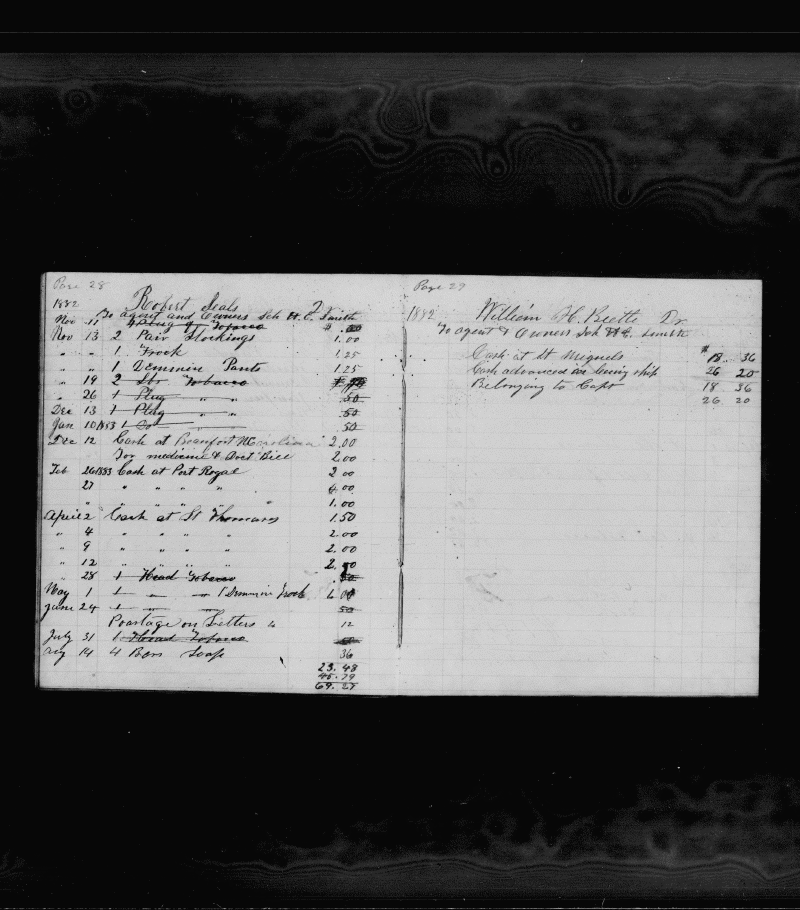 Page 28
1882 Robert Seals
To agent and Owners Sch H. C. Smith
Nov 11 1 Plug of Tobacco $ .50
Nov 13 2 Pair Stockings 1.00
" " 1 Frock 1.25
" " 1 Demmin Pants 1.25
" 19 2 Lbs. Tobacco
" 26 1 Plug " " 50
Dec 13 1 Plug " " 50
Jan 10 1883 1 Do 50
Dec 12 Cash at Beaufort NCarolina 2.00
For medicine & Doct Bill 2.00
Feb 26 1883 Cash at Port Royal 2 00
27 " " " " 4.00
" " " " " " 1.00
April 2 Cash at St Thomas 1.50
" 4 " " " " 2.00
" 9 " " " " 2.00
" 12 " " " " 2.00
" 28 1 Head Tobacco 50
May 1 1 " " 1 Demmin Frock
June 24 1 50
Poastage on Letters " 12
July 31 1 Head Tobacco
Aug 14 4 Bars Soap 36
23.48
45.79
69.27
Page 29
1882 William H. Dr
To agent & Owners Sch H C. Smith
Cash at St Miguels $ 18. 36
Cash advanced in ship 26 20
Belonging to Capt 18 36
26 20